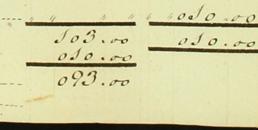 010.00
103.00 010.00
010.00
093.00